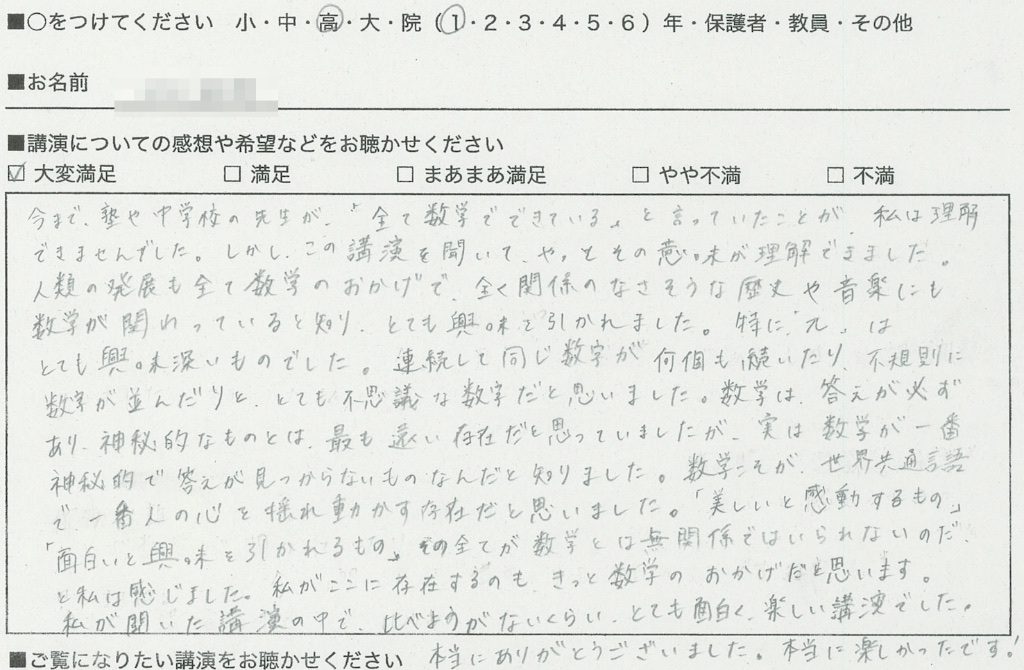 ■○をつけてください　小・中・高・大・院（1・2・3・4・5・6）年・保護者・教員・その他
■お名前
■講演についての感想や希望などをお聴かせください
☑ 大変満足　□ 満足　□ まあまあ満足　□ やや不満　□ 不満
今まで、塾や中学校の先生が、「全て数学でできている」と言っていたことが、私は理解
できませんでした。しかし、この講演を聞いて、やっとその意味が理解できました。
人類の発展も全て数学のおかげで、全く関係のなさそうな歴史や音楽にも
数学が関わっていると知り、とても興味を引かれました。特に「π」は
とても興味深いものでした。連続して同じ数字が何個も続いたり、不規則に
数字が並んだりと、とても不思議な数字だと思いました。数学は、答えが必ず
あり、神秘的なものとは、最も遠い存在だと思っていましたが、実は数学が一番
神秘的で答えが見つからないものなんだと知りました。数学こそが、世界共通言語
で一番人の心を揺れ動かす存在だと思いました。「美しいと感動するもの」
「面白いと興味を引かれるもの」その全てが数学とは無関係ではいられないのだ、
と私は感じました。私がここに存在するのも、きっと数学のおかげだと思います。
私が聞いた講演の中で、比べようがないくらい、とても面白く、楽しい講演でした。
本当にありがとうございました。本当に楽しかったです!
■ご覧になりたい講演をお聴かせください